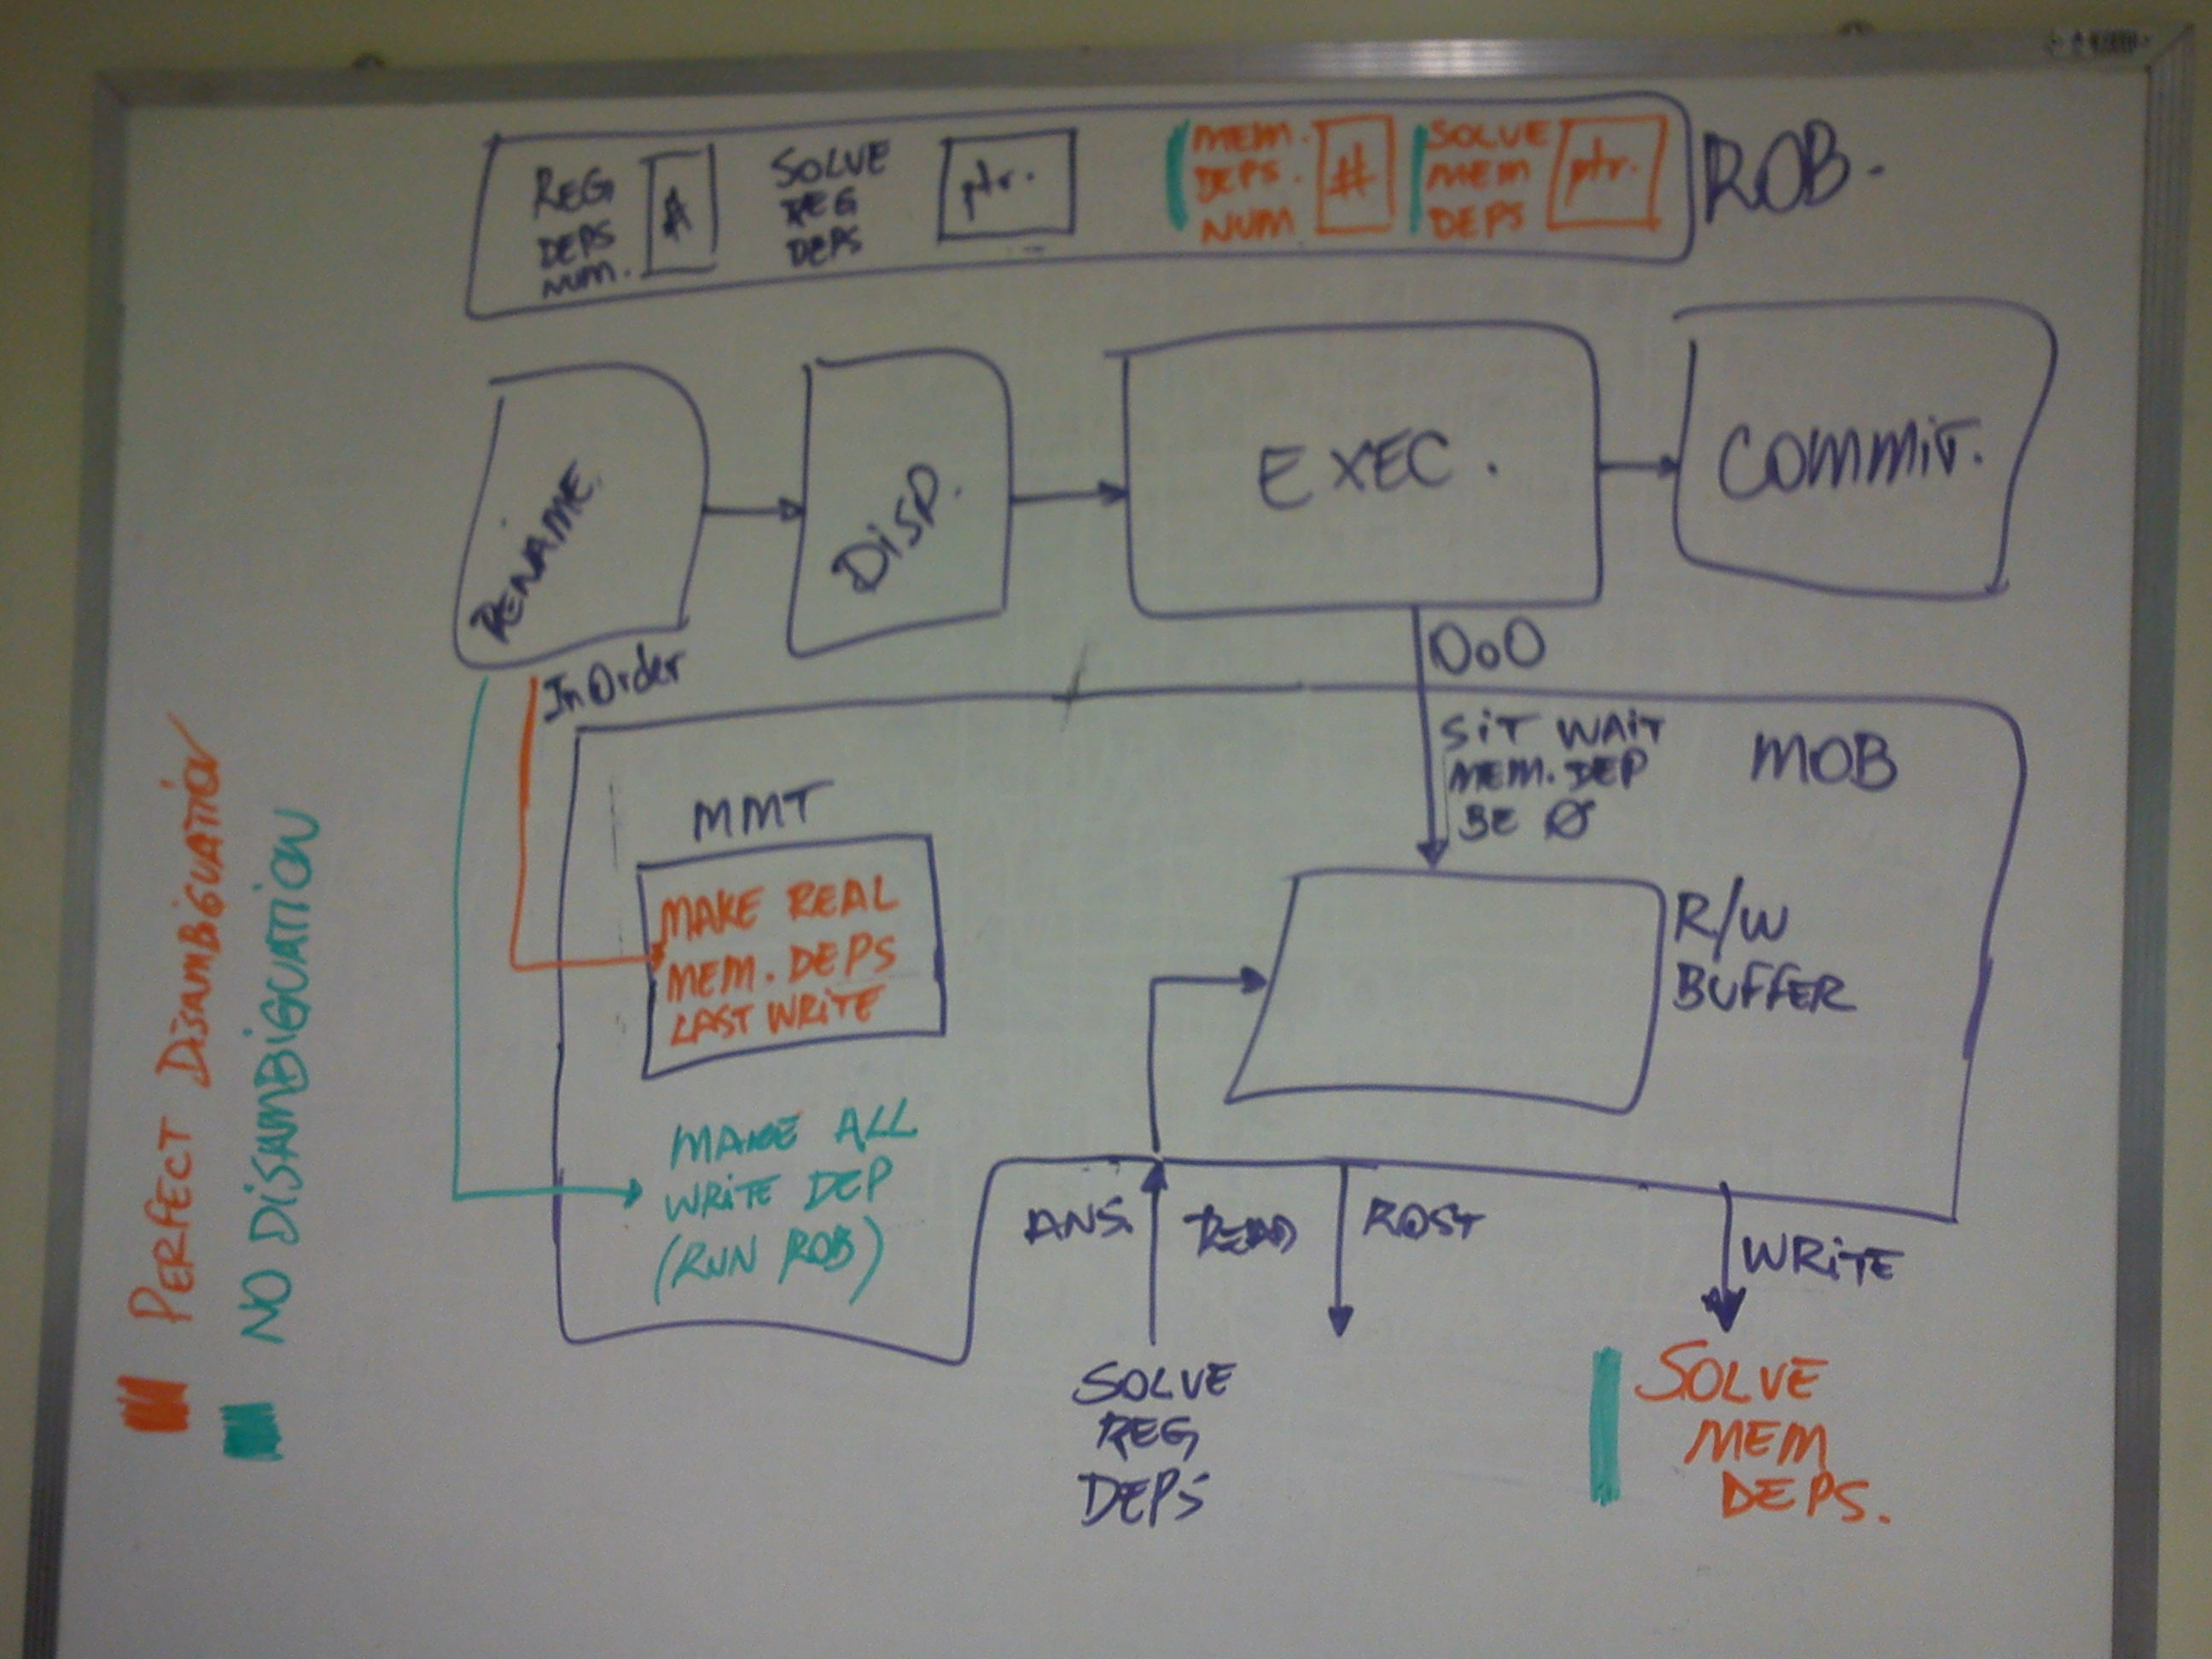 REG
DEPS
NUM.
#
SOLVE
REG
DEPS
ptr.
MEM.
DEPS.
NUM
#
SOLVE
MEM
DEPS
ptr.
ROB.
RENAME.
DISP.
EXEC.
COMMIT.
In Order
OoO
SIT WAIT
MEM. DEP
BE Ø
MOB
MMT
MAKE REAL
MEM. DEPS
LAST WRITE
R/W
BUFFER
MAKE ALL
WRITE DEP
(RUN ROB)
ANS.
READ
WRITE
SOLVE
REG
DEPS
SOLVE
MEM
DEPS.
PERFECT DISAMBIGUATION
NO DISAMBIGUATION